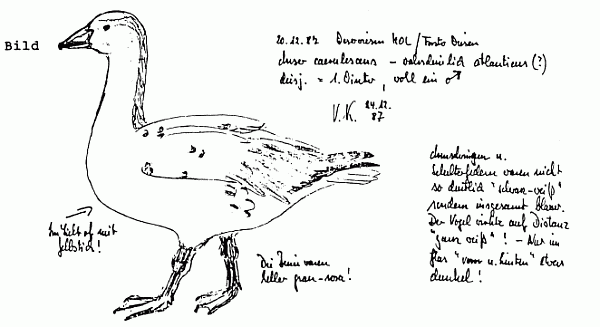 Bild
20.12.87
Anser caerulescens – wahrscheinlich atlanticus (?)
diesj. = 1. Winter, wohl ein ♂
V.K. 24.12.
87
waren nicht
so deutlich "schwarz-weiß"
sondern insgesamt blasser.
Der Vogel wirkte auf Distanz
"ganz weiß"! – Nur im
Glas "vorn u. hinten" etwas
dunkel!
Im Licht oft mit
Gelbstich!
Die Beine waren
heller grau-rosa!